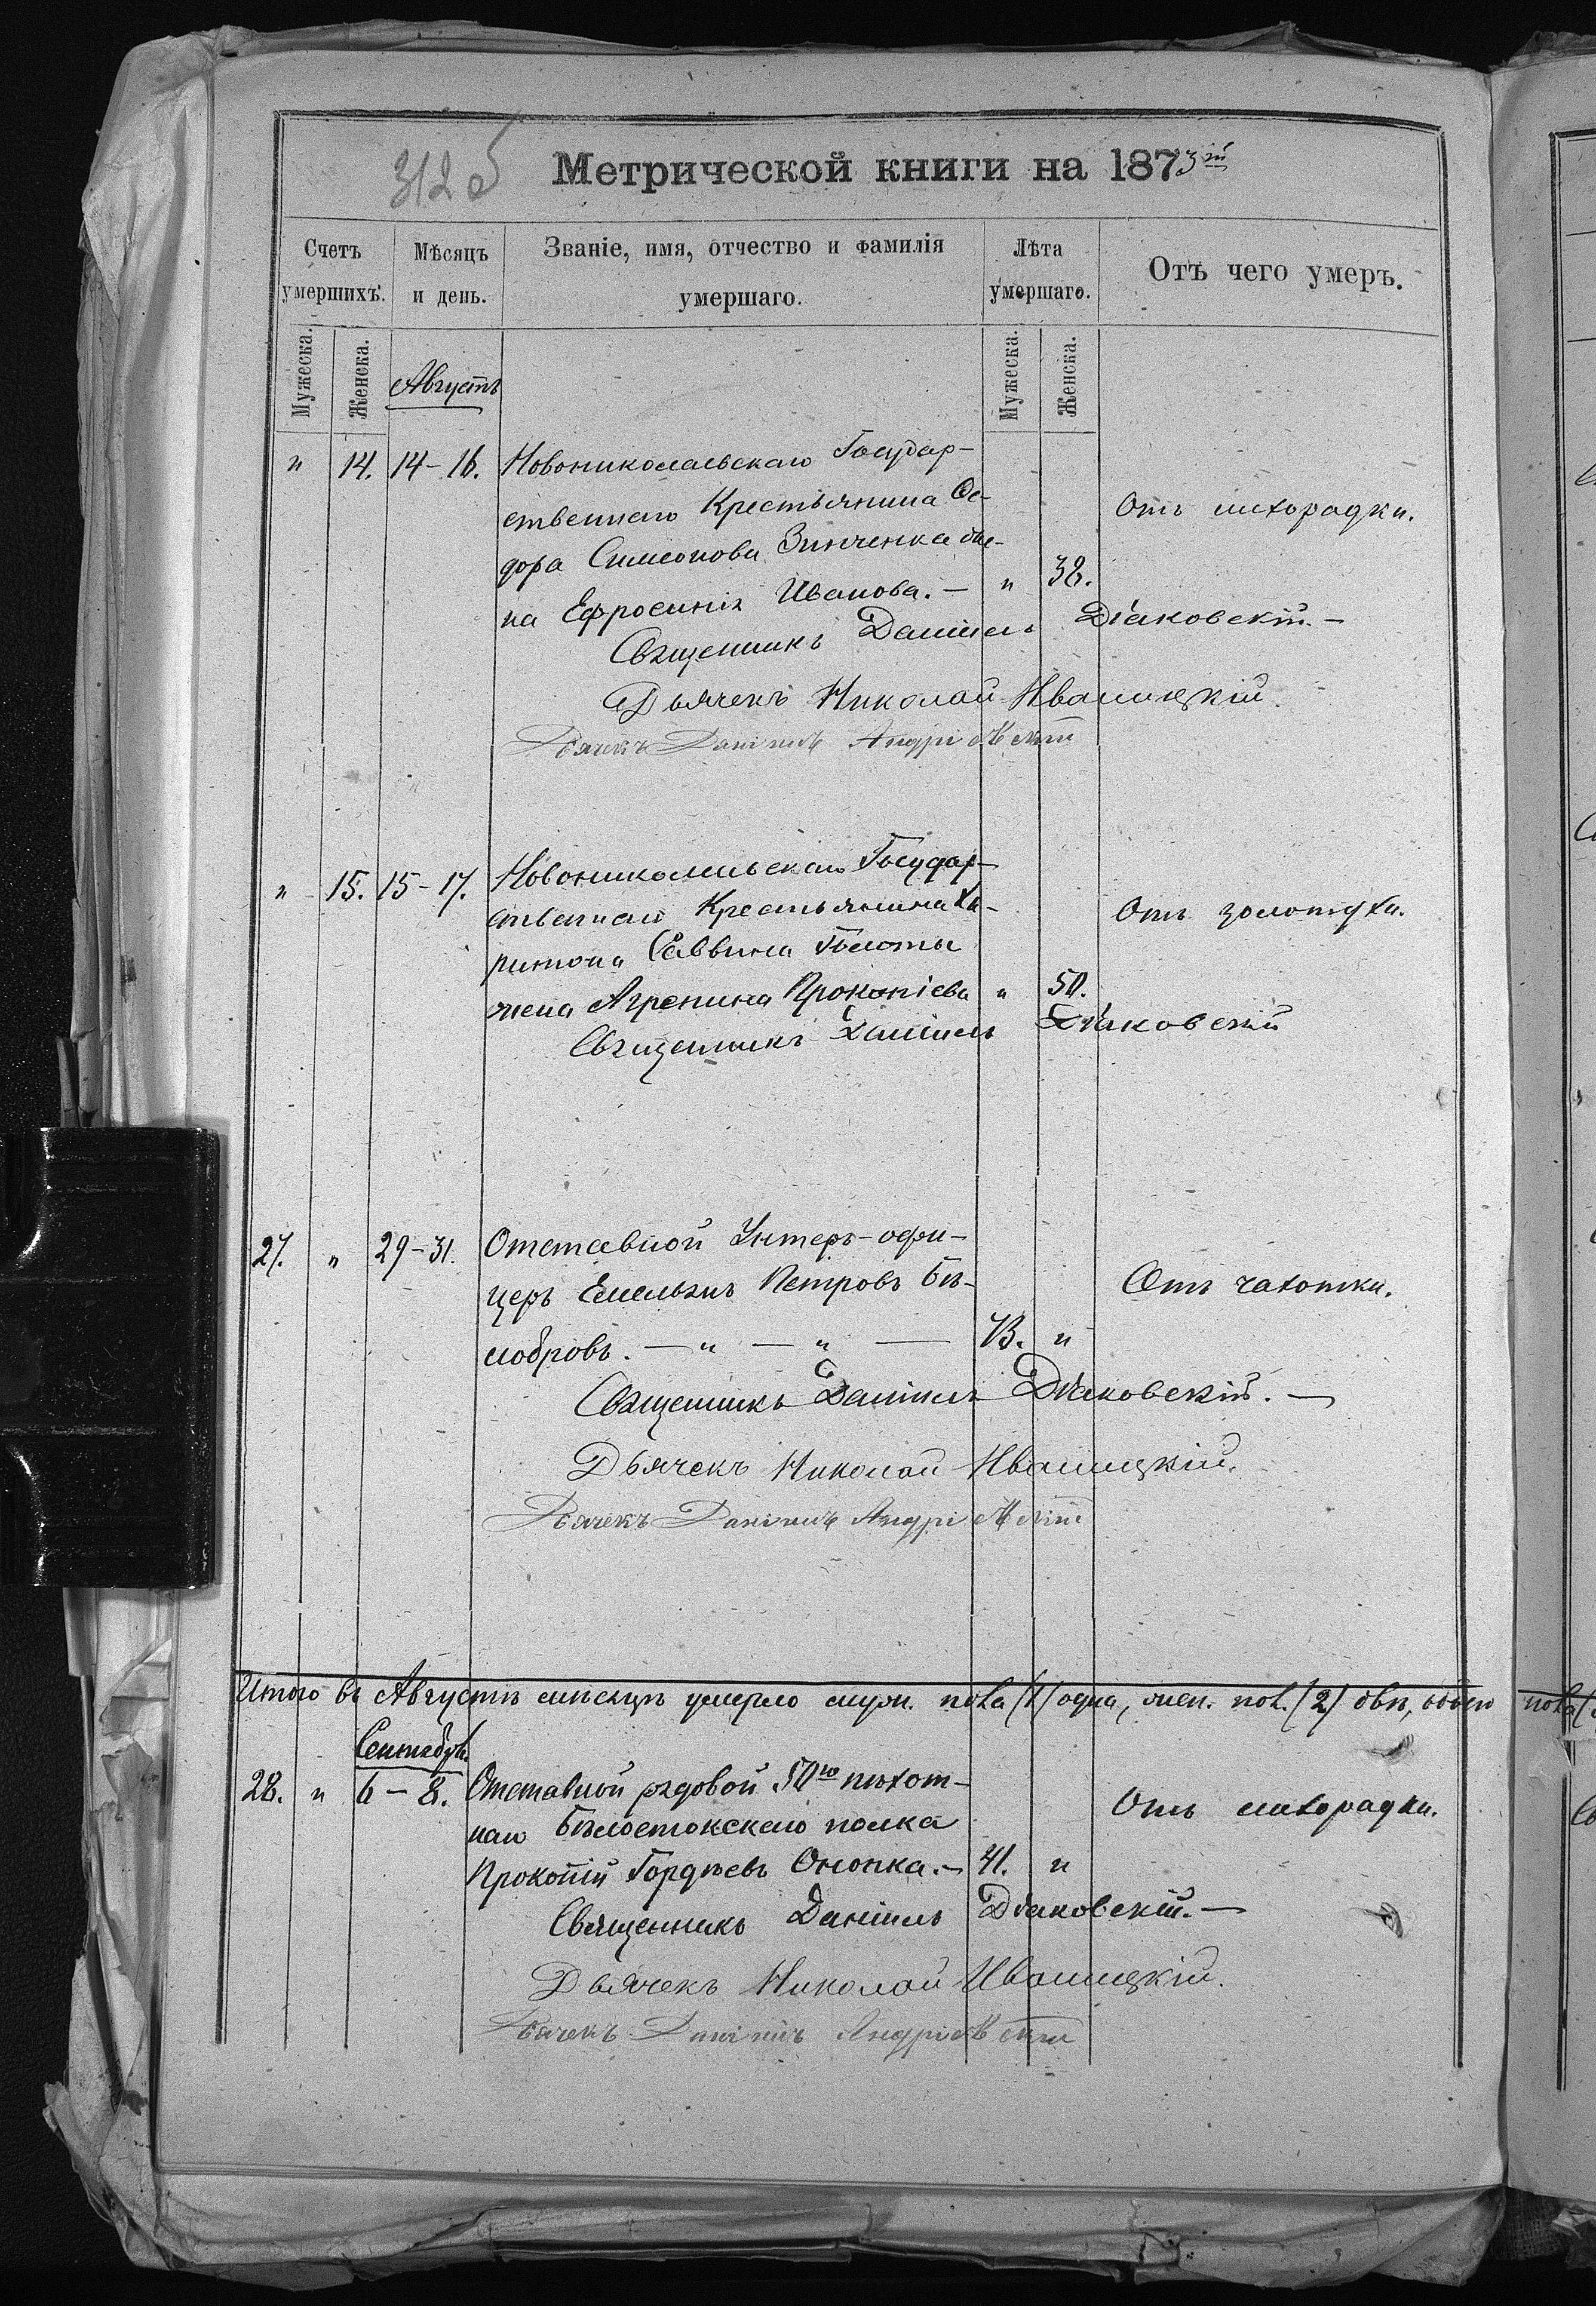 312 об
Метрической книги на 1873й
Счетъ умершихъ.
Мѣсяцъ и день.
Званіе, имя, отчество и фамилія умершаго.
Лѣта умершаго.
Отъ чего умеръ.
Мужеска.
Женска.
Августъ
Мужеска.
Женска.
" 14. 14-16. Новониколаевскаго Государ-
ственнаго Крестьянина Ѳе- Отъ лихорадки.
дора Симеонова Зинченка
на Ефросинія Иванова. - " 38.
Священникъ Даніилъ Діаковскій. -
Дьячекъ Николай Иваницкій.
Дьячекъ Даніилъ Андріевскій
" 15. 15-17. Новониколаевскаго Государ-
ственнаго Крестьянина Ха- Отъ золотухи.
ритона Саввина
жена Агрепина Прокопіева " 50.
Священникъ Даніилъ Діаковскій
27. " 29-31. Отставной Унтеръ-офи-
церъ Емельянъ Петровъ Бѣ- Отъ чахотки.
лобровъ. - " - " - 73. "
Священникъ Даніилъ Діаковскій. -
Дьячекъ Николай Иваницкій.
Дьячекъ Даніилъ Андріевскій
Итого въ Августѣ мѣсяцѣ умерло муж. пола (1) одна, жен. пол. (2) двѣ, обоего пола (
Сентябрь.
28. " 6-8. Отставной рядовой 50го пѣхот-
наго Бѣлостокскаго полка Отъ лихорадки.
Прокопій Гордѣевъ Онопка. - 41. "
Священникъ Даніилъ Діаковскій. -
Дьячекъ Николай Иваницкій.
Дьячекъ Даніилъ Андріевскій